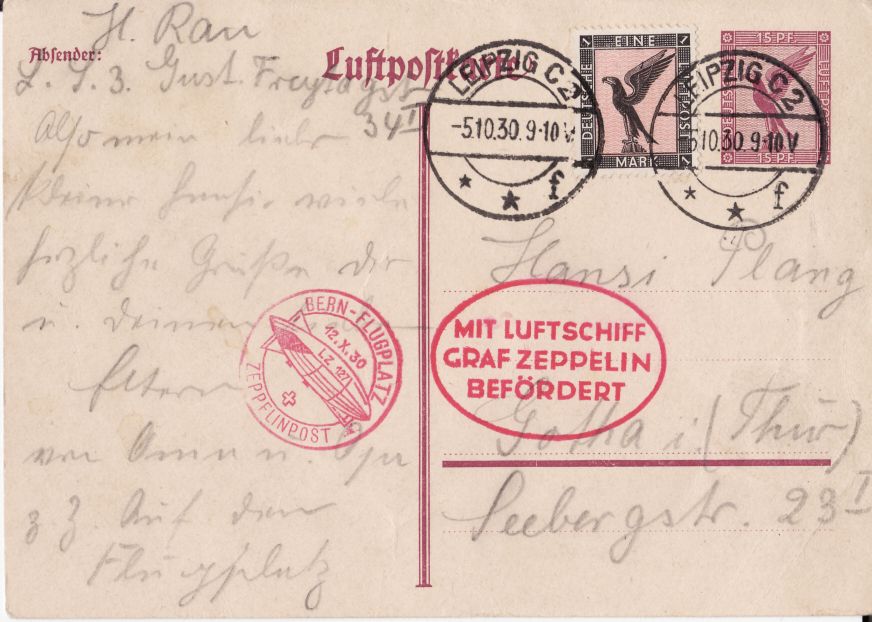 H. Rau
Absender:
L. S. 3. Gust. Freytagstr
34 I
Luftpostkarte
Also mein lieber
kleiner Hansi, viele
herzliche Grüße dir
u. deinen
Eltern
von Oma u. Opa
z Z. Auf dem
Flugplatz
LEIPZIG C2
-5.10.30. 9-10 V
f
EINE
DEUTSCHE
FLUGPOST
MARK
1
1
1
1
LEIPZIG C2
5.10.30. 9-10 V
f
15 PF.
15 PF.
BERN-FLUGPLATZ
12.X.30
LZ 127
ZEPPELINPOST
MIT LUFTSCHIFF
GRAF ZEPPELIN
BEFÖRDERT
Hansi Plang
Gotha i. (Thür)
Seebergstr. 23 I